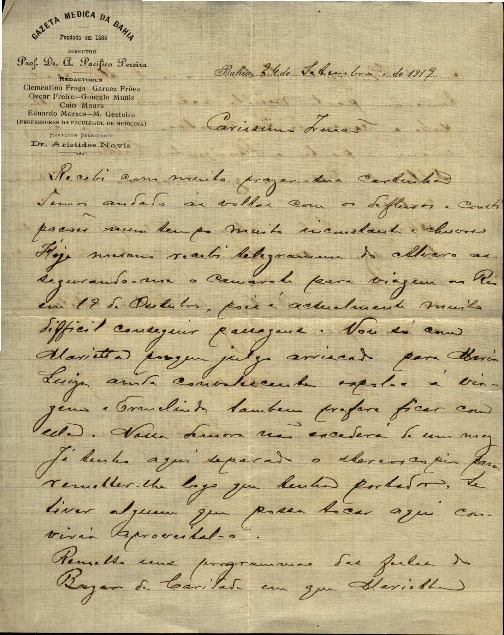 GAZETA MEDICA DA BAHIA
Fundada em 1866
DIRECTOR
Prof. Dr. A. Pacifico Pereira
REDACTORES
Clementino Fraga - Garcez Fróes
Oscar Freire - Gonçalo Muniz
Caio Moura
Eduardo Moraes - M. Gesteira
(PROFESSORES DA FACULDADE DE MEDICINA)
Dr. Aristides Novis
Bahia, 24 de Setembro de 1919
Carissimo Irmão
Recebi com muito prazer sua cartinha
Temos andado ás voltas com os defluxos e consti
pações num tempo muito inconstante e chuvoso
Hoje mesmo recebi telegramma do Alvaro as-
segurando-me o camarote para viagem ao Rio
em 19 de Outubro, pois é actualmente muito
difficil conseguir passagens. Vou só com
Marietta porque julgo arriscado para Maria
Luiza ainda convalescente expol-a á via-
gem e Ermelinda tambem prefere ficar com
ella. Nossa demora não excederá de um mez
Já tenho aqui separado o stereoscopio para
remetter-lhe logo que tenha portador. Se
tiver alguem que possa tocar aqui con-
viria aproveital-o.
Remetto uns programmas das festas do
Bazar de Caridade em que Marietta